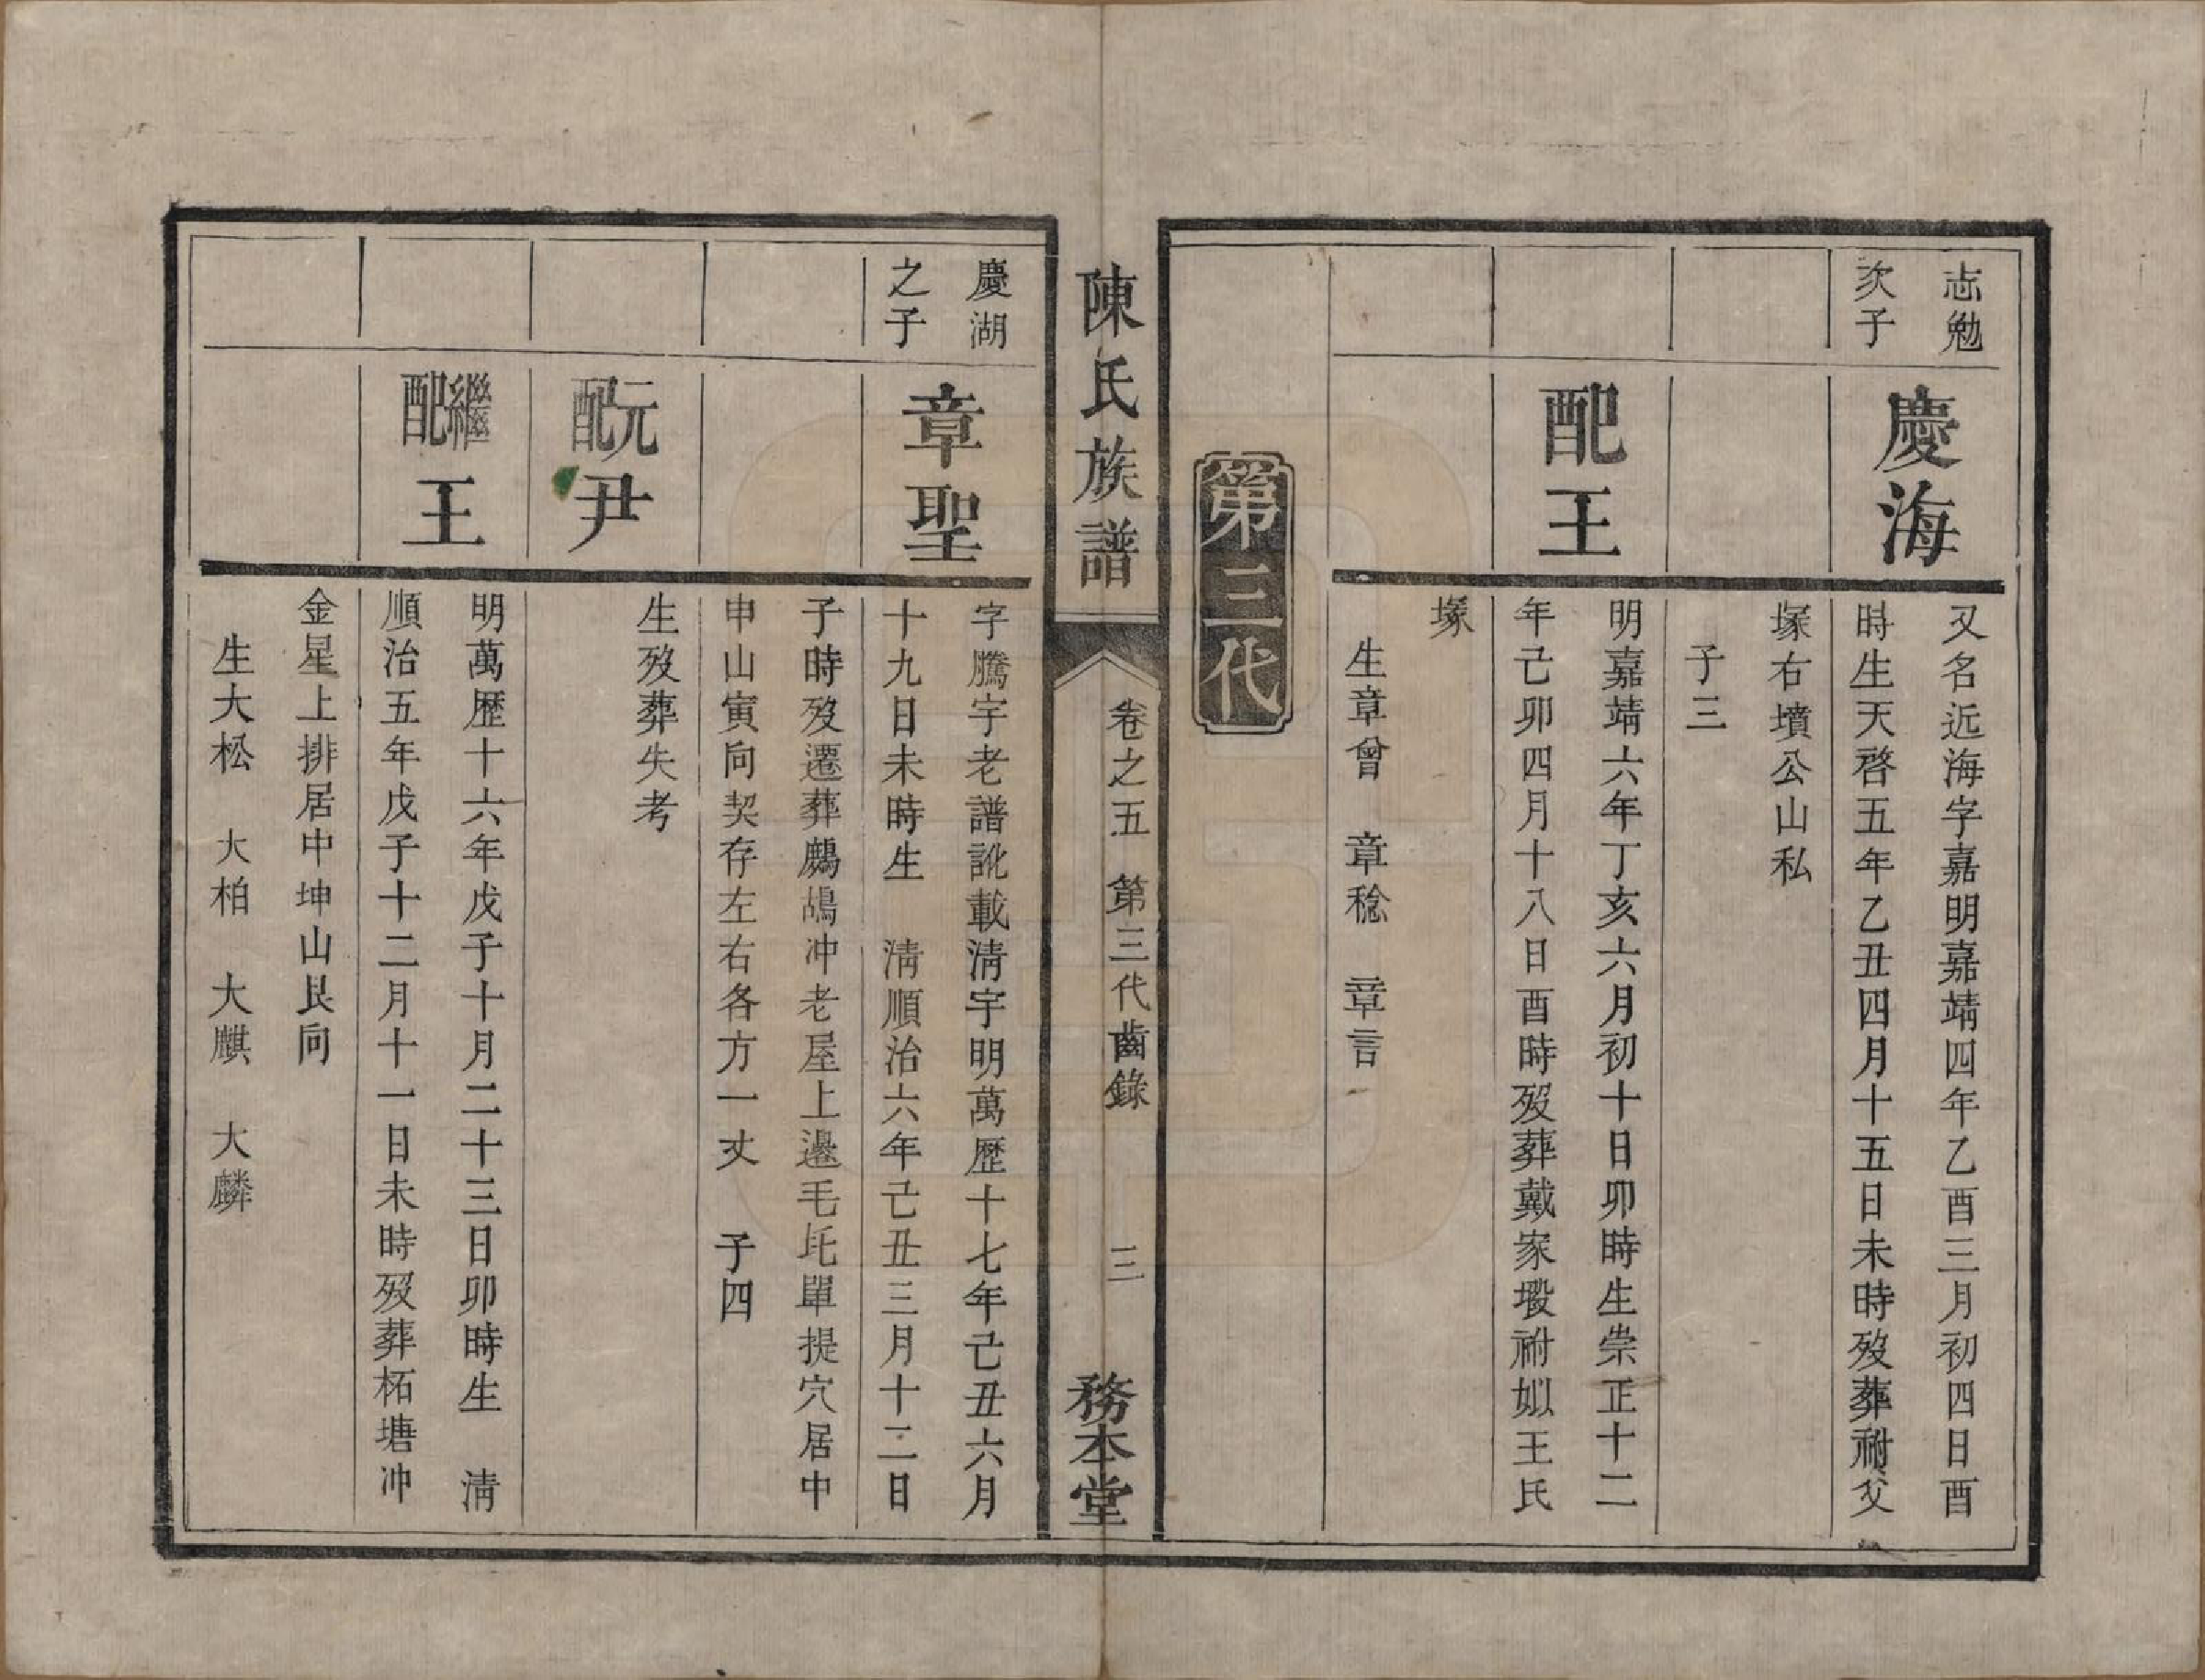 志勉
次子
慶海
又名近海字嘉明嘉靖四年乙酉三月初四日酉
時生天啓五年乙丑四月十五日未時歿葬祔父
塚右墳公山私
子三
配王
明嘉靖六年丁亥六月初十日卯時生崇正十二
年己卯四月十八日酉時歿葬戴家塅祔姒王氏
塚
生章曾 章稔 章言
第三代
陳氏族譜
卷之五 第三代齒錄
三
務本堂
慶湖
之子
章聖
字騰宇老譜訛載淸宇明萬歷十七年己丑六月
十九日未時生 淸順治六年己丑三月十二日
子時歿遷葬鷓鴣冲老屋上邊毛坨單提穴居中
申山寅向契存左右各方一丈 子四
元配尹
生歿葬失考
繼配王
明萬歷十六年戊子十月二十三日卯時生 淸
順治五年戊子十二月十一日未時歿葬柘塘冲
金星上排居中坤山艮向
生大松 大柏 大麒 大麟